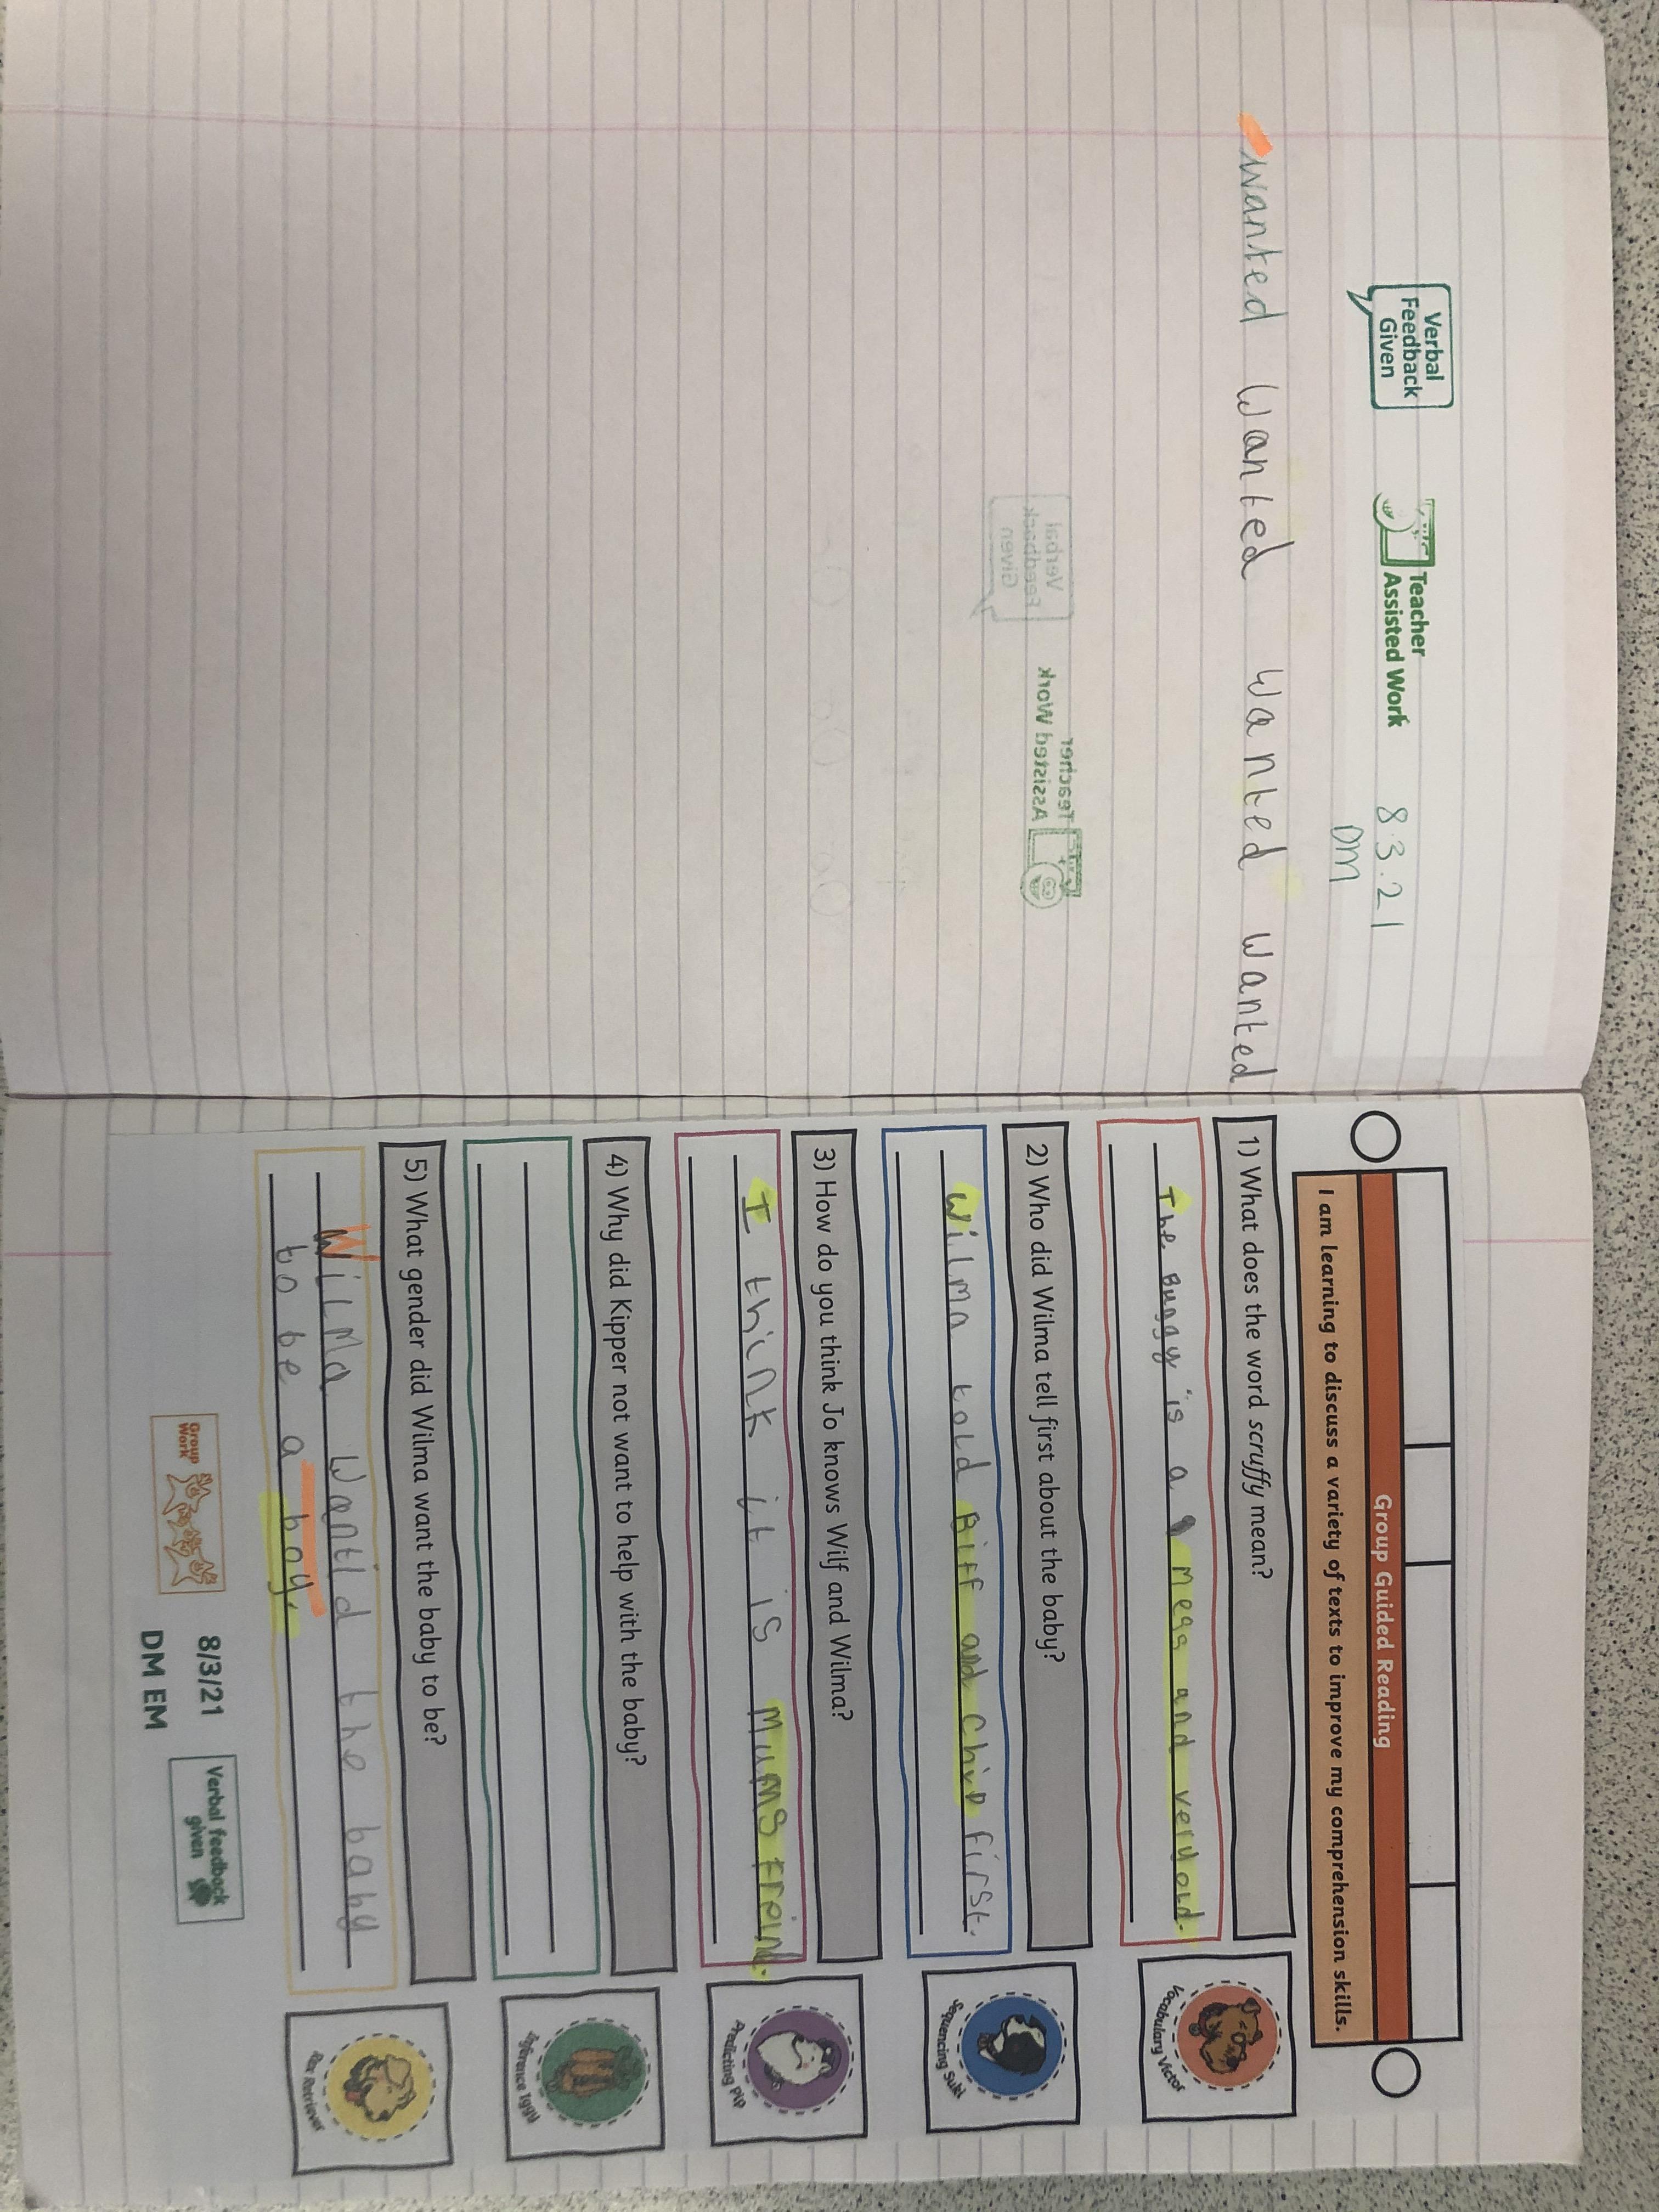 Verbal
Feedback
Given
Teacher
Assisted Work
8.3.21
DM
wanted wanted wanted wanted
Verbal
Feedback
Given
Teacher
Assisted Work
Group Guided Reading
I am learning to discuss a variety of texts to improve my comprehension skills.
1) What does the word scruffy mean?
The Buggy is a mess and very old.
Vocabulary Victor
2) Who did Wilma tell first about the baby?
Wilma told Biff and Chip first.
Sequencing Suki
3) How do you think Jo knows Wilf and Wilma?
I think it is Mums Freind.
Predicting Pip
4) Why did Kipper not want to help with the baby?
Inference Iggy
5) What gender did Wilma want the baby to be?
Wilma wantid the baby
to be a boy.
Rex Retriever
Group
Work
8/3/21
DM EM
Verbal feedback
given